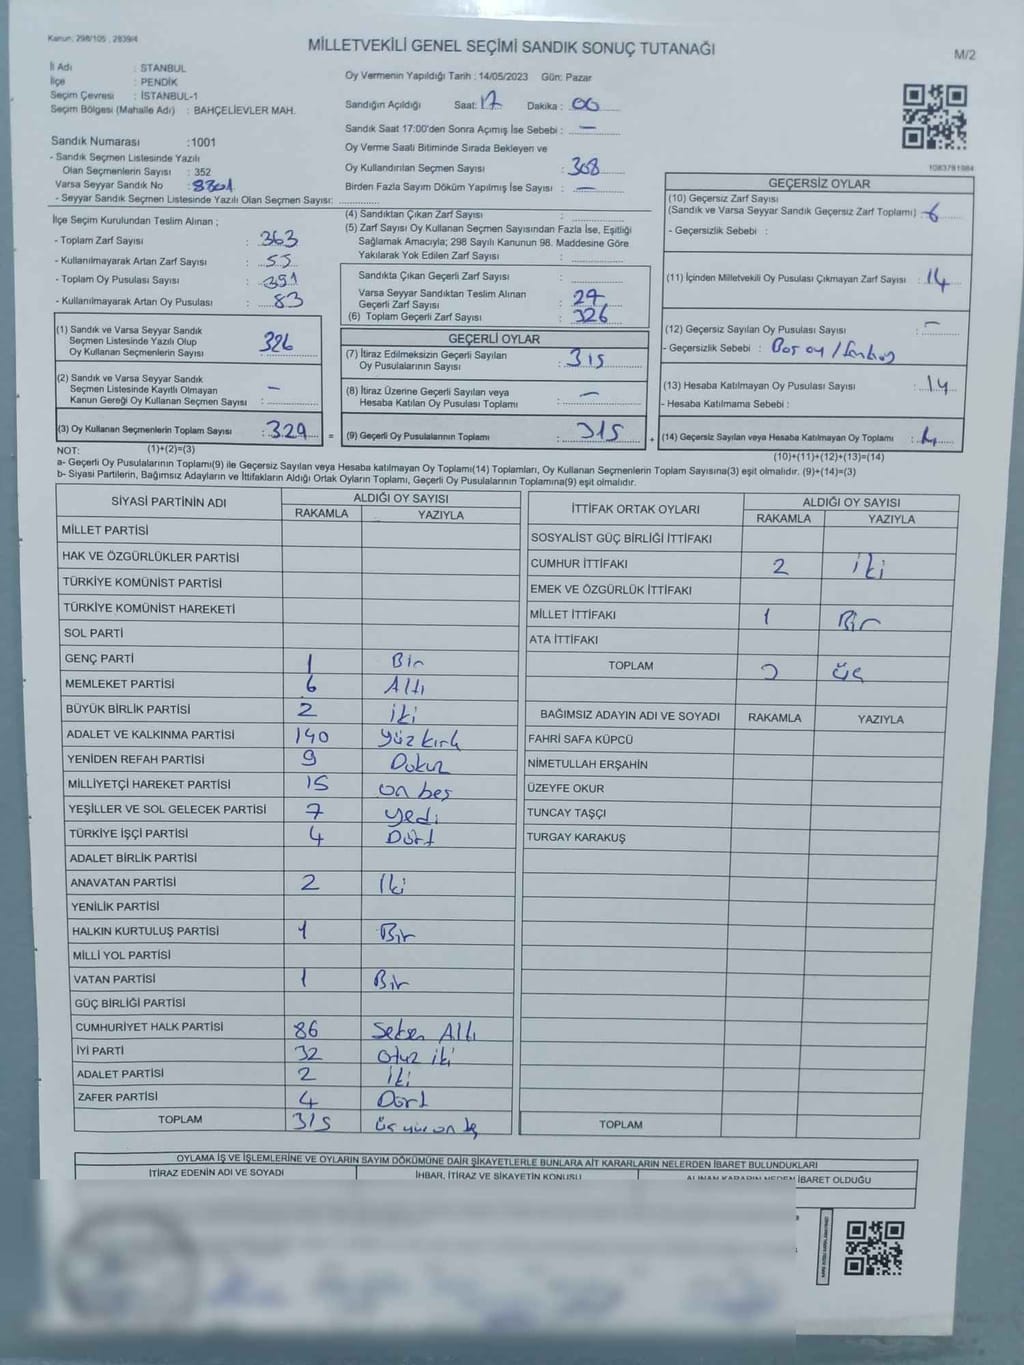 Kanun: 298/105 , 2839/4
MİLLETVEKİLİ GENEL SEÇİMİ SANDIK SONUÇ TUTANAĞI
M/2
İl Adı : STANBUL
İlçe : PENDİK
Seçim Çevresi : İSTANBUL-1
Seçim Bölgesi (Mahalle Adı) : BAHÇELİEVLER MAH.
Sandık Numarası :1001
- Sandık Seçmen Listesinde Yazılı
Olan Seçmenlerin Sayısı : 352
Varsa Seyyar Sandık No :
- Seyyar Sandık Seçmen Listesinde Yazılı Olan Seçmen Sayısı:
Oy Vermenin Yapıldığı Tarih : 14/05/2023 Gün: Pazar
Sandığın Açıldığı Saat: 17 Dakika : 00
Sandık Saat 17:00'den Sonra Açımış İse Sebebi : —
Oy Verme Saati Bitiminde Sırada Bekleyen ve
Oy Kullandırılan Seçmen Sayısı : 308
Birden Fazla Sayım Döküm Yapılmış İse Sayısı : —
1083791984
İlçe Seçim Kurulundan Teslim Alınan ;
- Toplam Zarf Sayısı : 363
- Kullanılmayarak Artan Zarf Sayısı : 55
- Toplam Oy Pusulası Sayısı : 391
- Kullanılmayarak Artan Oy Pusulası : 83
(1) Sandık ve Varsa Seyyar Sandık
Seçmen Listesinde Yazılı Olup
Oy Kullanan Seçmenlerin Sayısı : 326
(2) Sandık ve Varsa Seyyar Sandık
Seçmen Listesinde Kayıtlı Olmayan
Kanun Gereği Oy Kullanan Seçmen Sayısı : —
(3) Oy Kullanan Seçmenlerin Toplam Sayısı : 329
(4) Sandıktan Çıkan Zarf Sayısı :
(5) Zarf Sayısı Oy Kullanan Seçmen Sayısından Fazla İse, Eşitliği
Sağlamak Amacıyla; 298 Sayılı Kanunun 98. Maddesine Göre
Yakılarak Yok Edilen Zarf Sayısı :
Sandıkta Çıkan Geçerli Zarf Sayısı :
Varsa Seyyar Sandıktan Teslim Alınan
Geçerli Zarf Sayısı :
(6) Toplam Geçerli Zarf Sayısı : 326
GEÇERLİ OYLAR
(7) İtiraz Edilmeksizin Geçerli Sayılan
Oy Pusulalarının Sayısı : 315
(8) İtiraz Üzerine Geçerli Sayılan veya
Hesaba Katılan Oy Pusulası Toplamı : —
= (9) Geçerli Oy Pusulalarının Toplamı : 315
GEÇERSİZ OYLAR
(10) Geçersiz Zarf Sayısı
(Sandık ve Varsa Seyyar Sandık Geçersiz Zarf Toplamı) : 6
- Geçersizlik Sebebi :
(11) İçinden Milletvekili Oy Pusulası Çıkmayan Zarf Sayısı : 14
(12) Geçersiz Sayılan Oy Pusulası Sayısı : —
- Geçersizlik Sebebi : Boş oy /
(13) Hesaba Katılmayan Oy Pusulası Sayısı : 14
- Hesaba Katılmama Sebebi :
+ (14) Geçersiz Sayılan veya Hesaba Katılmayan Oy Toplamı :
NOT: (1)+(2)=(3)
(10)+(11)+(12)+(13)=(14)
a- Geçerli Oy Pusulalarının Toplamı(9) ile Geçersiz Sayılan veya Hesaba katılmayan Oy Toplamı(14) Toplamları, Oy Kullanan Seçmenlerin Toplam Sayısına(3) eşit olmalıdır. (9)+(14)=(3)
b- Siyasi Partilerin, Bağımsız Adayların ve İttifakların Aldığı Ortak Oyların Toplamı, Geçerli Oy Pusulalarının Toplamına(9) eşit olmalıdır.
SİYASİ PARTİNİN ADI ALDIĞI OY SAYISI
RAKAMLA YAZIYLA
MİLLET PARTİSİ
HAK VE ÖZGÜRLÜKLER PARTİSİ
TÜRKİYE KOMÜNİST PARTİSİ
TÜRKİYE KOMÜNİST HAREKETİ
SOL PARTİ
GENÇ PARTİ 1 Bir
MEMLEKET PARTİSİ 6 Altı
BÜYÜK BİRLİK PARTİSİ 2 İki
ADALET VE KALKINMA PARTİSİ 140 yüz kırk
YENİDEN REFAH PARTİSİ 9 Dokuz
MİLLİYETÇİ HAREKET PARTİSİ 15 on beş
YEŞİLLER VE SOL GELECEK PARTİSİ 7 yedi
TÜRKİYE İŞÇİ PARTİSİ 4 Dört
ADALET BİRLİK PARTİSİ
ANAVATAN PARTİSİ 2 İki
YENİLİK PARTİSİ
HALKIN KURTULUŞ PARTİSİ 1 Bir
MİLLİ YOL PARTİSİ
VATAN PARTİSİ 1 Bir
GÜÇ BİRLİĞİ PARTİSİ
CUMHURİYET HALK PARTİSİ 86 Seksen Altı
İYİ PARTİ 32 otuz iki
ADALET PARTİSİ 2 İki
ZAFER PARTİSİ 4 Dört
TOPLAM 315 üç yüz on beş
İTTİFAK ORTAK OYLARI ALDIĞI OY SAYISI
RAKAMLA YAZIYLA
SOSYALİST GÜÇ BİRLİĞİ İTTİFAKI
CUMHUR İTTİFAKI 2 İki
EMEK VE ÖZGÜRLÜK İTTİFAKI
MİLLET İTTİFAKI 1 Bir
ATA İTTİFAKI
TOPLAM 3 üç
BAĞIMSIZ ADAYIN ADI VE SOYADI RAKAMLA YAZIYLA
FAHRİ SAFA KÜPCÜ
NİMETULLAH ERŞAHİN
ÜZEYFE OKUR
TUNCAY TAŞÇI
TURGAY KARAKUŞ
TOPLAM
OYLAMA İŞ VE İŞLEMLERİNE VE OYLARIN SAYIM DÖKÜMÜNE DAİR ŞİKAYETLERLE BUNLARA AİT KARARLARIN NELERDEN İBARET BULUNDUKLARI
İTİRAZ EDENİN ADI VE SOYADI İHBAR, İTİRAZ VE ŞİKAYETİN KONUSU ALINAN KARARIN NEDEN İBARET OLDUĞU